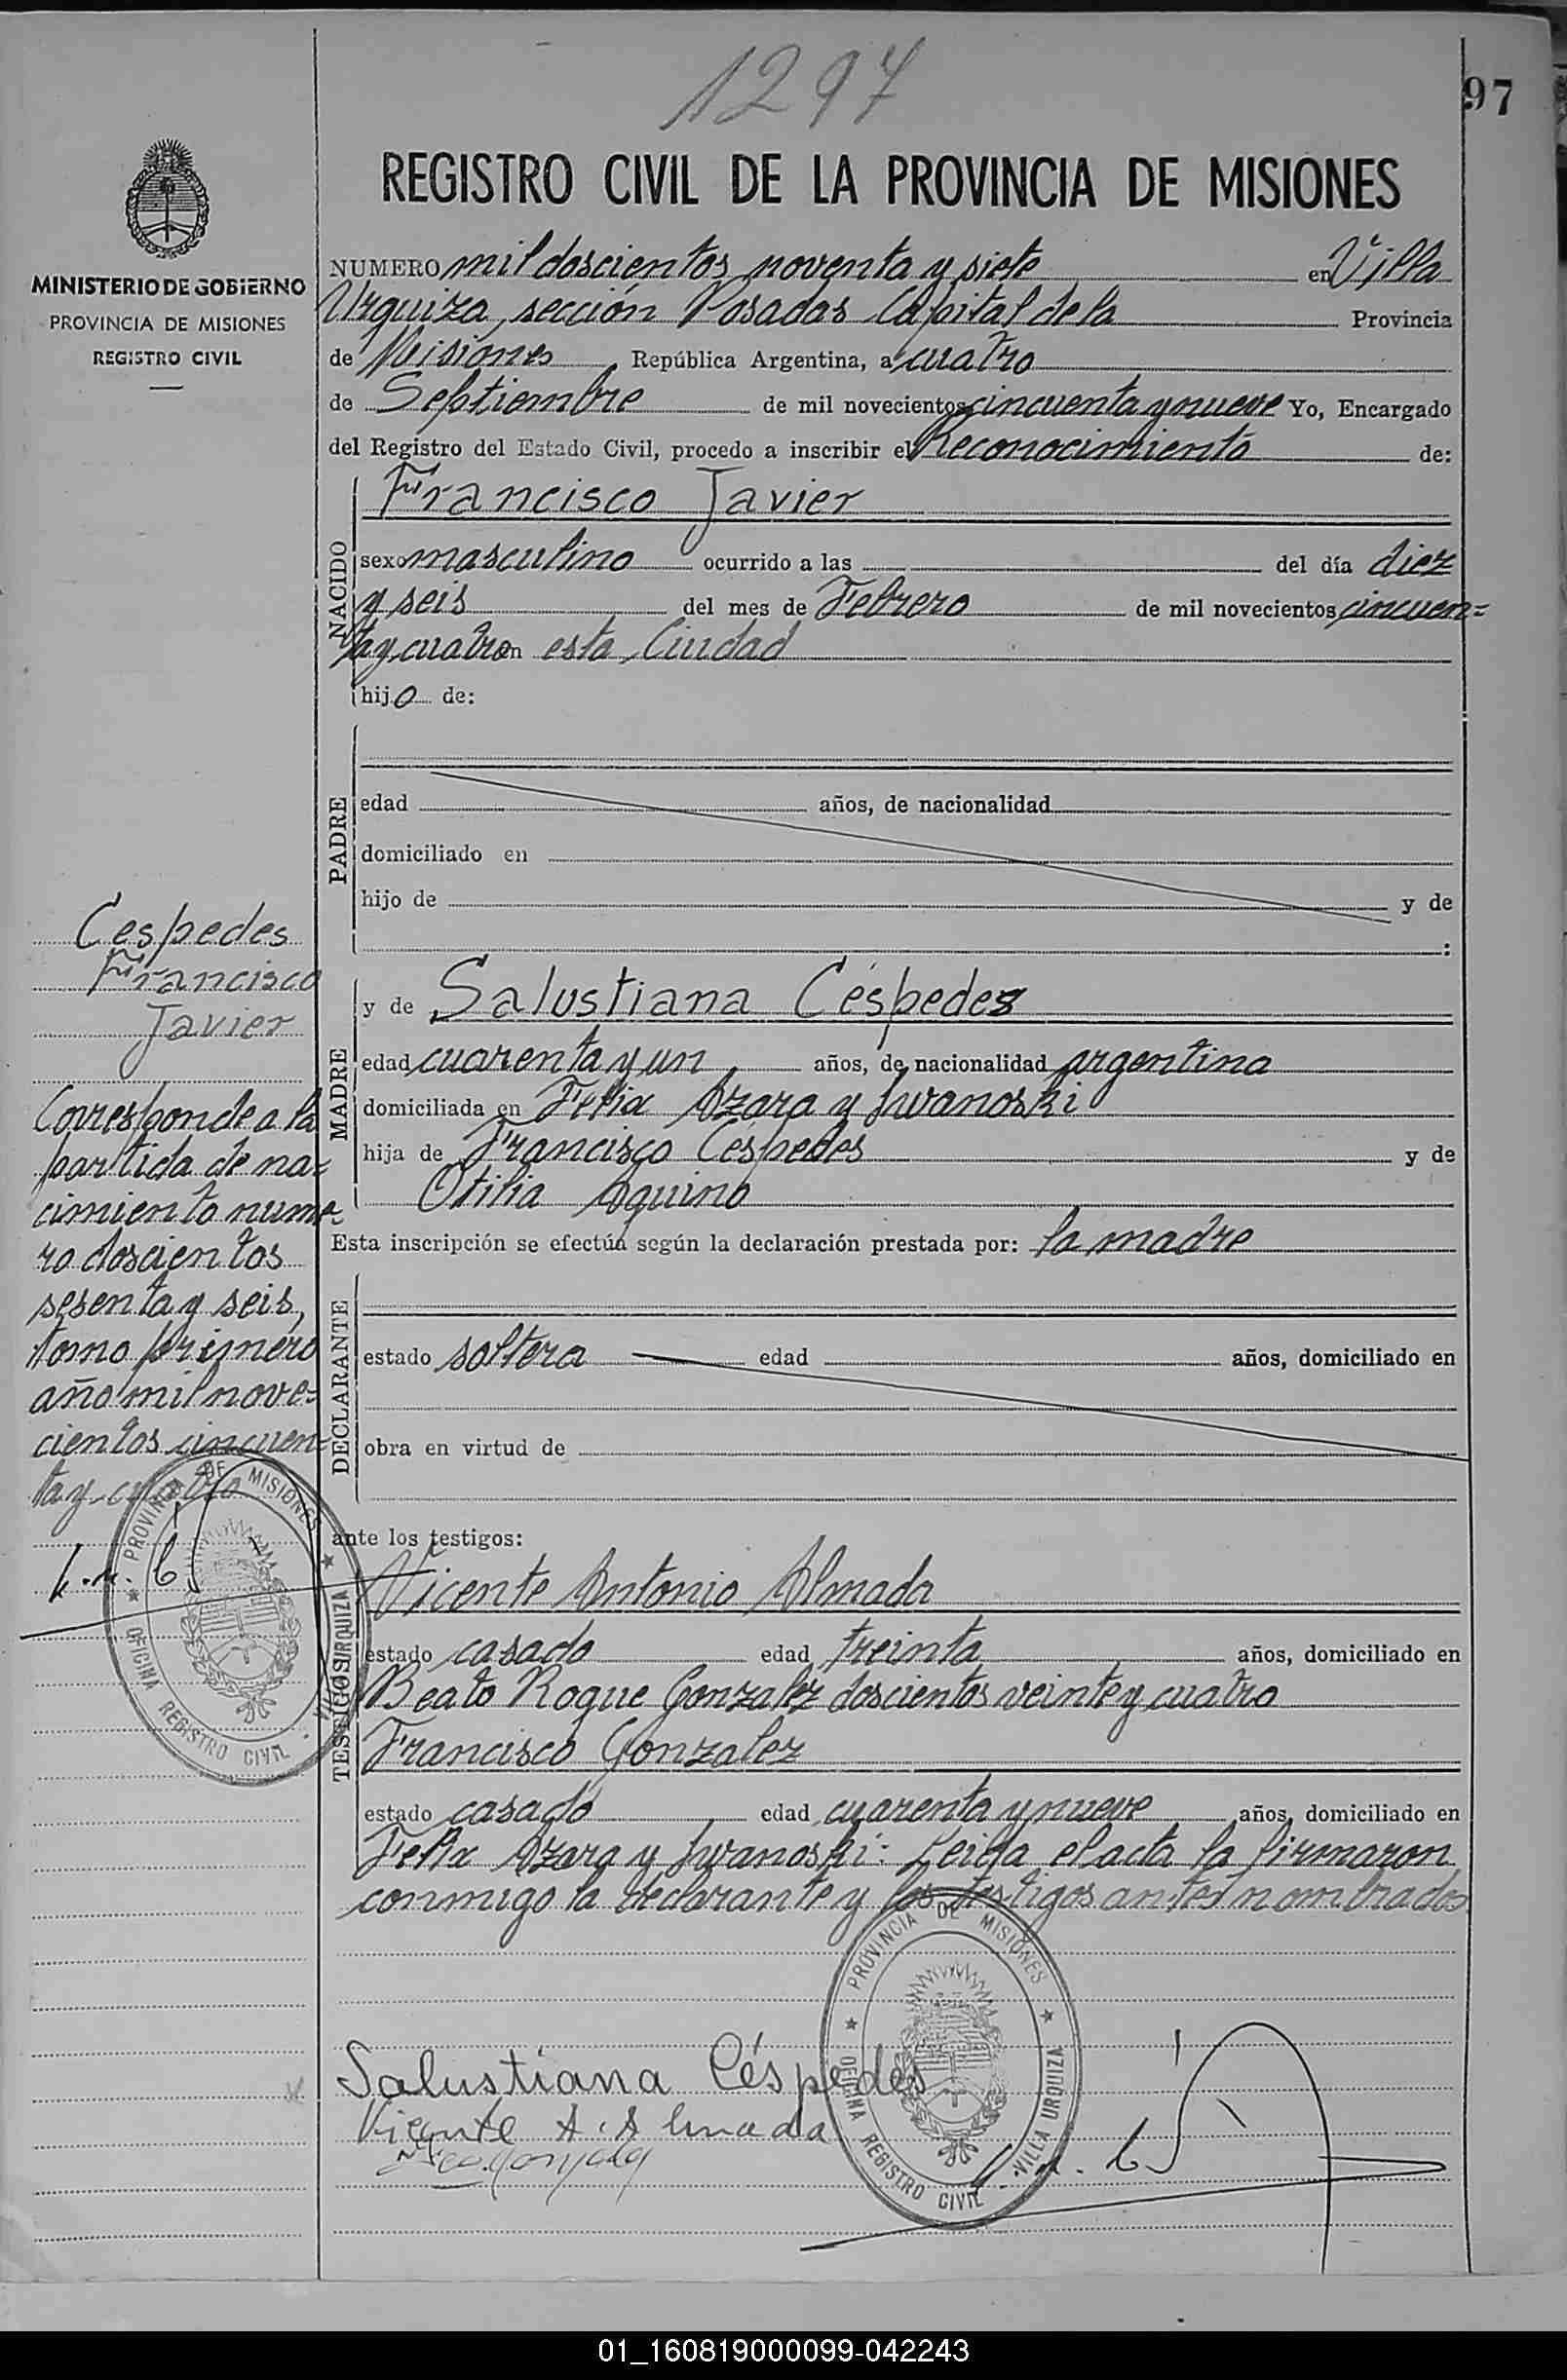 1297
97
REGISTRO CIVIL DE LA PROVINCIA DE MISIONES
MINISTERIO DE GOBIERNO
PROVINCIA DE MISIONES
REGISTRO CIVIL
NUMERO mil doscientos noventa y siete en Villa
Urquiza, sección Posadas Capital de la Provincia
de Misiones República Argentina, a cuatro
de Septiembre de mil novecientos cincuenta y nueve Yo, Encargado
del Registro del Estado Civil, procedo a inscribir el Reconocimiento de:
NACIDO
Francisco Javier
sexo masculino ocurrido a las del día diez
y seis del mes de Febrero de mil novecientos cincuen=
ta y cuatro en esta Ciudad
hijo de:
PADRE
edad años, de nacionalidad
domiciliado en
hijo de y de
:
Cespedes
Francisco
Javier
Corresponde a la
partida de na=
cimiento nume=
ro doscientos
sesenta y seis,
tomo primero
año mil nove=
cientos cincuen=
ta y cuatro
PROVINCIA DE MISIONES
OFICINA REGISTRO CIVIL · VILLA URQUIZA
MADRE
y de Salustiana Céspedes
edad cuarenta y un años, de nacionalidad argentina
domiciliada en Felix Azara y Iwanoski
hija de Francisco Céspedes y de
Otilia Aquino
Esta inscripción se efectúa según la declaración prestada por: la madre
DECLARANTE
estado soltera edad años, domiciliado en
obra en virtud de
ante los testigos:
TESTIGOS
Vicente Antonio Almada
estado casado edad treinta años, domiciliado en
Beato Roque Gonzalez doscientos veinte y cuatro
Francisco Gonzalez
estado casado edad cuarenta y nueve años, domiciliado en
Felix Azara y Iwanoski: Leida el acta la firmaron
conmigo la declarante y los testigos antes nombrados
PROVINCIA DE MISIONES
OFICINA REGISTRO CIVIL · VILLA URQUIZA
Salustiana Céspedes
Vicente A. Almada
Fco. Gonzalez
01_160819000099-042243